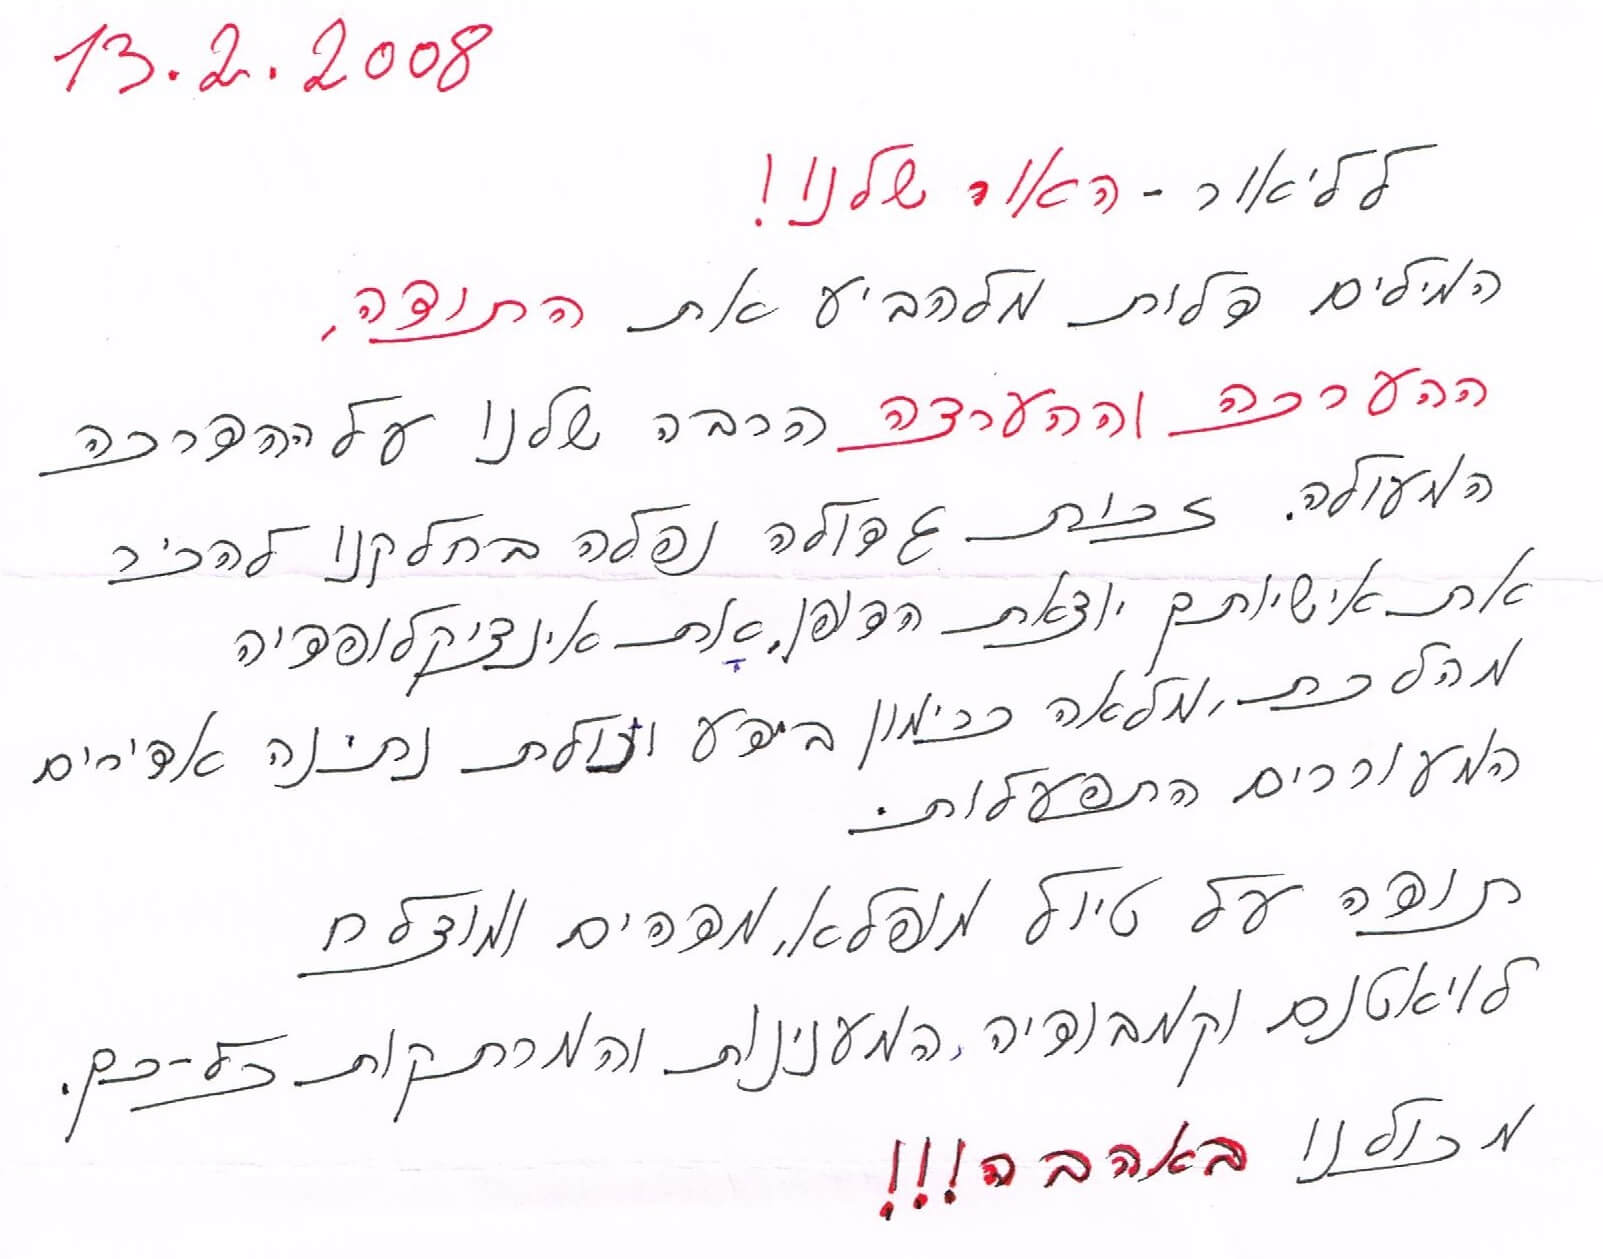 13.2.2008
לליאור - האור שלנו!
המילים דלות מלהביע את התודה,
ההערכה וההערצה הרבה שלנו על ההדרכה
המעולה. זכות גדולה נפלה בחלקנו להכיר
את אישיותך יוצאת הדופן, אַת אינציקלופדיה
מהלכת, מלאה כרימון בידע ויכולת נתינה אדירים
המעוררים התפעלות.
תודה על טיול מופלא, מדהים ומוצלח
לויאטנם וקמבודיה, המענינות והמרתקות כל-כך.
מכולנו באהבה!!!